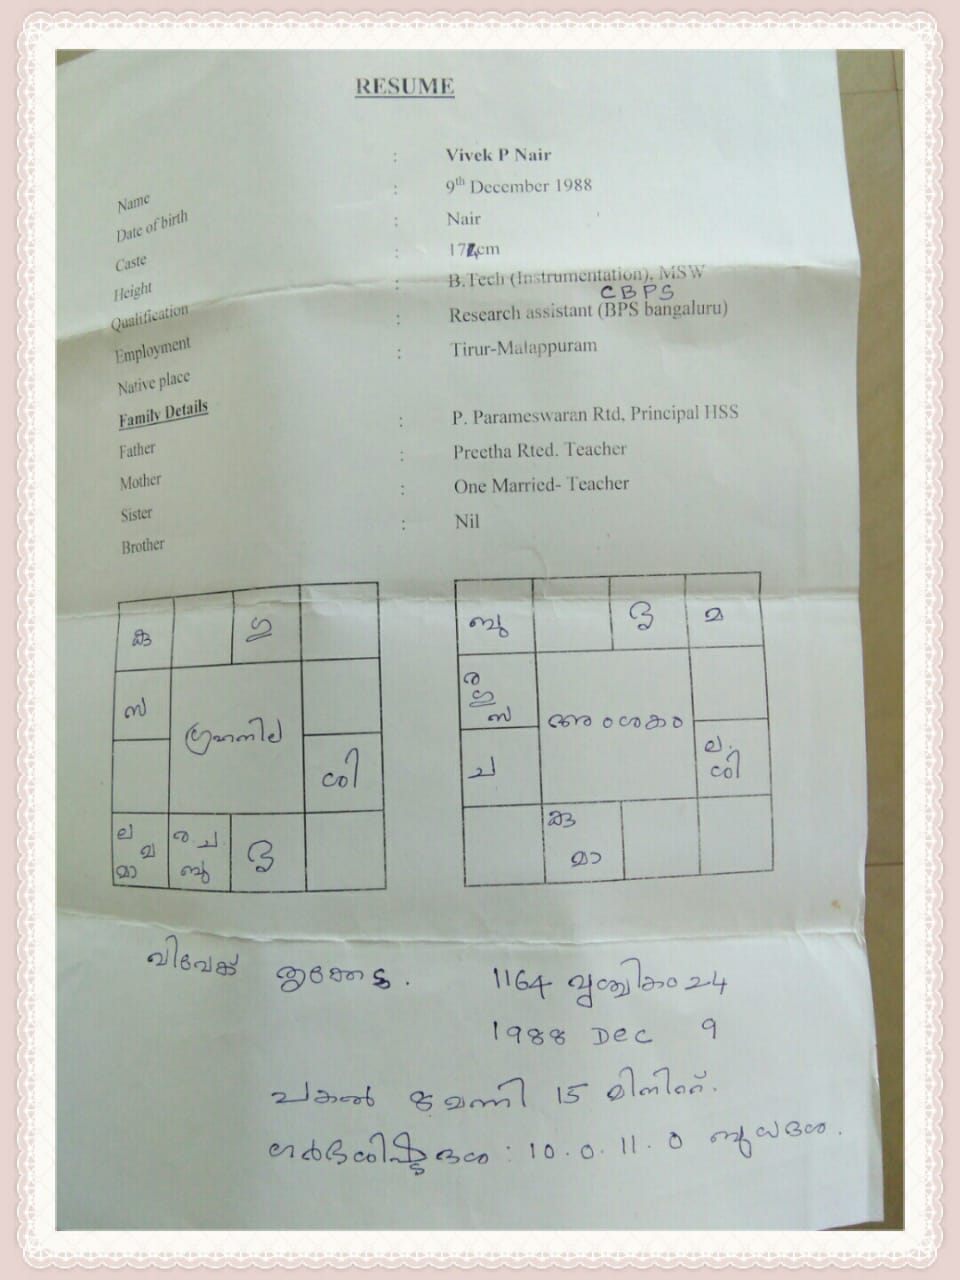 RESUME
Name : Vivek P Nair
Date of birth : 9th December 1988
Caste : Nair
Height : 174cm
Qualification : B.Tech (Instrumentation), MSW
CBPS
Employment : Research assistant (BPS bangaluru)
Native place : Tirur-Malappuram
Family Details
Father : P. Parameswaran Rtd, Principal HSS
Mother : Preetha Rted. Teacher
Sister : One Married- Teacher
Brother : Nil
കു ഗു
സ
ഗ്രഹനില
ശി
ല
മാ
ര ച
ബു
ബു മ
ര
ഗു
സ
അംശകം
ച
ല
ശി
കു
മാ
വിവേക് തൃക്കേട്ട. 1164 വൃശ്ചികം 24
1988 Dec 9
പകൽ 8 മണി 15 മിനിറ്റ്.
ഗർഭശിഷ്ടദശ : 10.0.11.0 ബുധദശ.